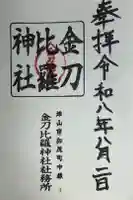 奉拝 令和八年八月二日
金刀
比羅
神社
金刀比羅神社社務所